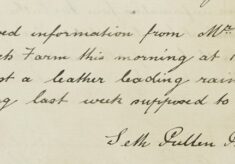 ed information from Mr
Farm this morning at
a leather leading rain
last week supposed to
Seth Pullen P